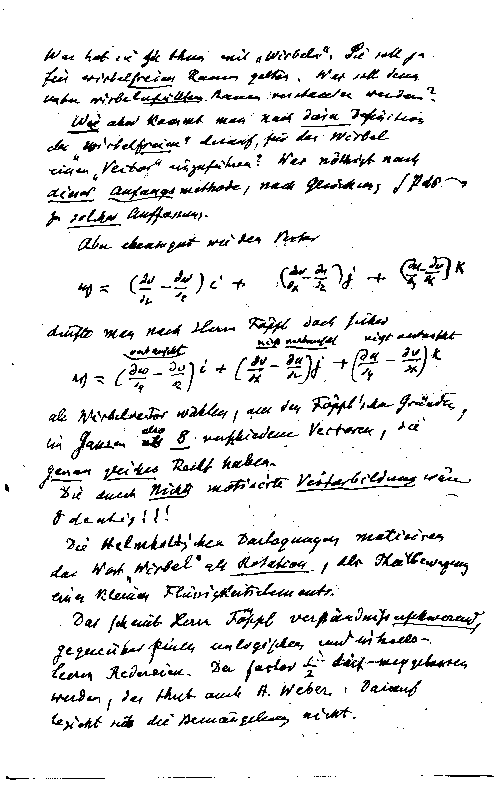 Was hat es zu thun mit „Wirbeln“. Sie soll ja
für wirbelfreien Raum gelten. Was soll denn
unter wirbelerfüllten Raum verstanden werden?
Wie aber kommt man nach dieser Definition
der „Wirbelfreien“ darauf, für das Wirbel
einen „Vector“ einzuführen? Was nöthigt nach
dieser Anfangsmethode, nach Gleichung ∫ P ds
zu solcher Auffassung.
Aber ebensogut wie den Vector
w = (∂v/∂z − ∂w/∂y) i + (∂w/∂x − ∂u/∂z) j + (∂u/∂y − ∂v/∂x) k
dürfte man nach Herrn Föppl doch sicher
vertauscht nicht vertauscht nicht vertauscht
w = (∂w/∂y − ∂v/∂z) i + (∂w/∂x − ∂u/∂z) j + (∂u/∂y − ∂v/∂x) k
als Wirbelvector wählen, aus den Föppl'schen Gründen,
im Ganzen also 8 verschiedene Vectoren, die
genau gleiches Recht haben.
Die durch Nichts motivirte Vectorbildung wäre
8 deutig!!!
Die Helmholtz'schen Darlegungen motiviren
das Wort „Wirbel“ als Rotation, als Theilbewegung
eines kleinen Flüssigkeitselements.
Das schreibt Herrn Föppl verständnisserschwerend,
gegenüber seinen unlogischen und inhalts-
leeren Redereien. Der factor 1/2 darf weggelassen
werden, das thut auch H. Weber. Darauf
bezieht sich die Bemängelung nicht.